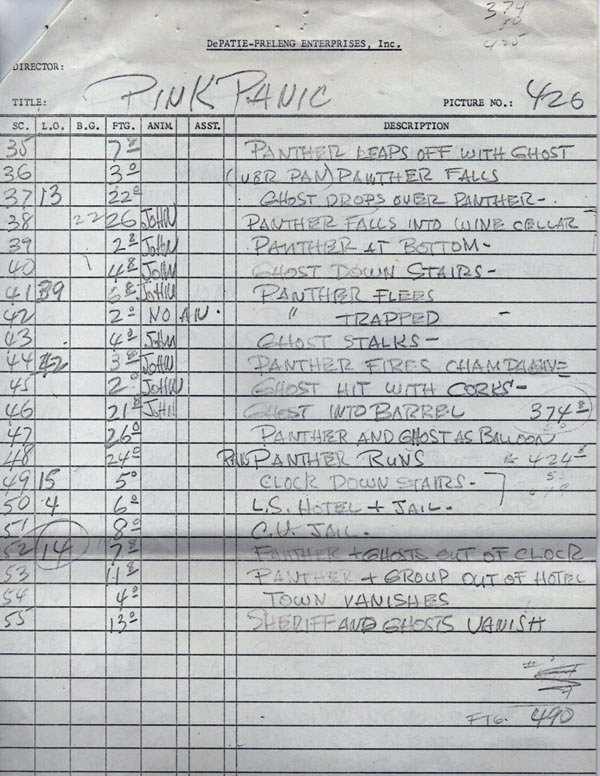 374
DePATIE-FRELENG ENTERPRISES, Inc.
DIRECTOR:
TITLE: PINK PANIC PICTURE NO.: 426
SC. L.O. B.G. FTG. ANIM. ASST. DESCRIPTION
35 7 8 PANTHER LEAPS OFF WITH GHOST
36 3 0 (VER PAN) PANTHER FALLS
37 13 22 0 GHOST DROPS OVER PANTHER-
38 22 26 JOHN PANTHER FALLS INTO WINE CELLAR
39 2 8 JOHN PANTHER AT BOTTOM-
40 4 8 JOHN GHOST DOWN STAIRS-
41 39 6 8 JOHN PANTHER FLEES
42 2 0 NO AN. " TRAPPED -
43 4 0 JOHN GHOST STALKS-
44 42 3 8 JOHN PANTHER FIRES CHAMPAGNE
45 2 0 JOHN GHOST HIT WITH CORKS-
46 21 8 JOHN GHOST INTO BARREL 374 8
47 26 0 PANTHER AND GHOST AS BALLOON
48 24 0 PAN PANTHER RUNS 424 8
49 15 5 0 CLOCK DOWN STAIRS-
50 4 6 0 L.S. HOTEL + JAIL.
51 8 0 C.U. JAIL.
52 14 7 8 PANTHER + GHOSTS OUT OF CLOCK
53 11 8 PANTHER + GROUP OUT OF HOTEL
54 4 0 TOWN VANISHES
55 13 0 SHERIFF AND GHOSTS VANISH
FTG. 490